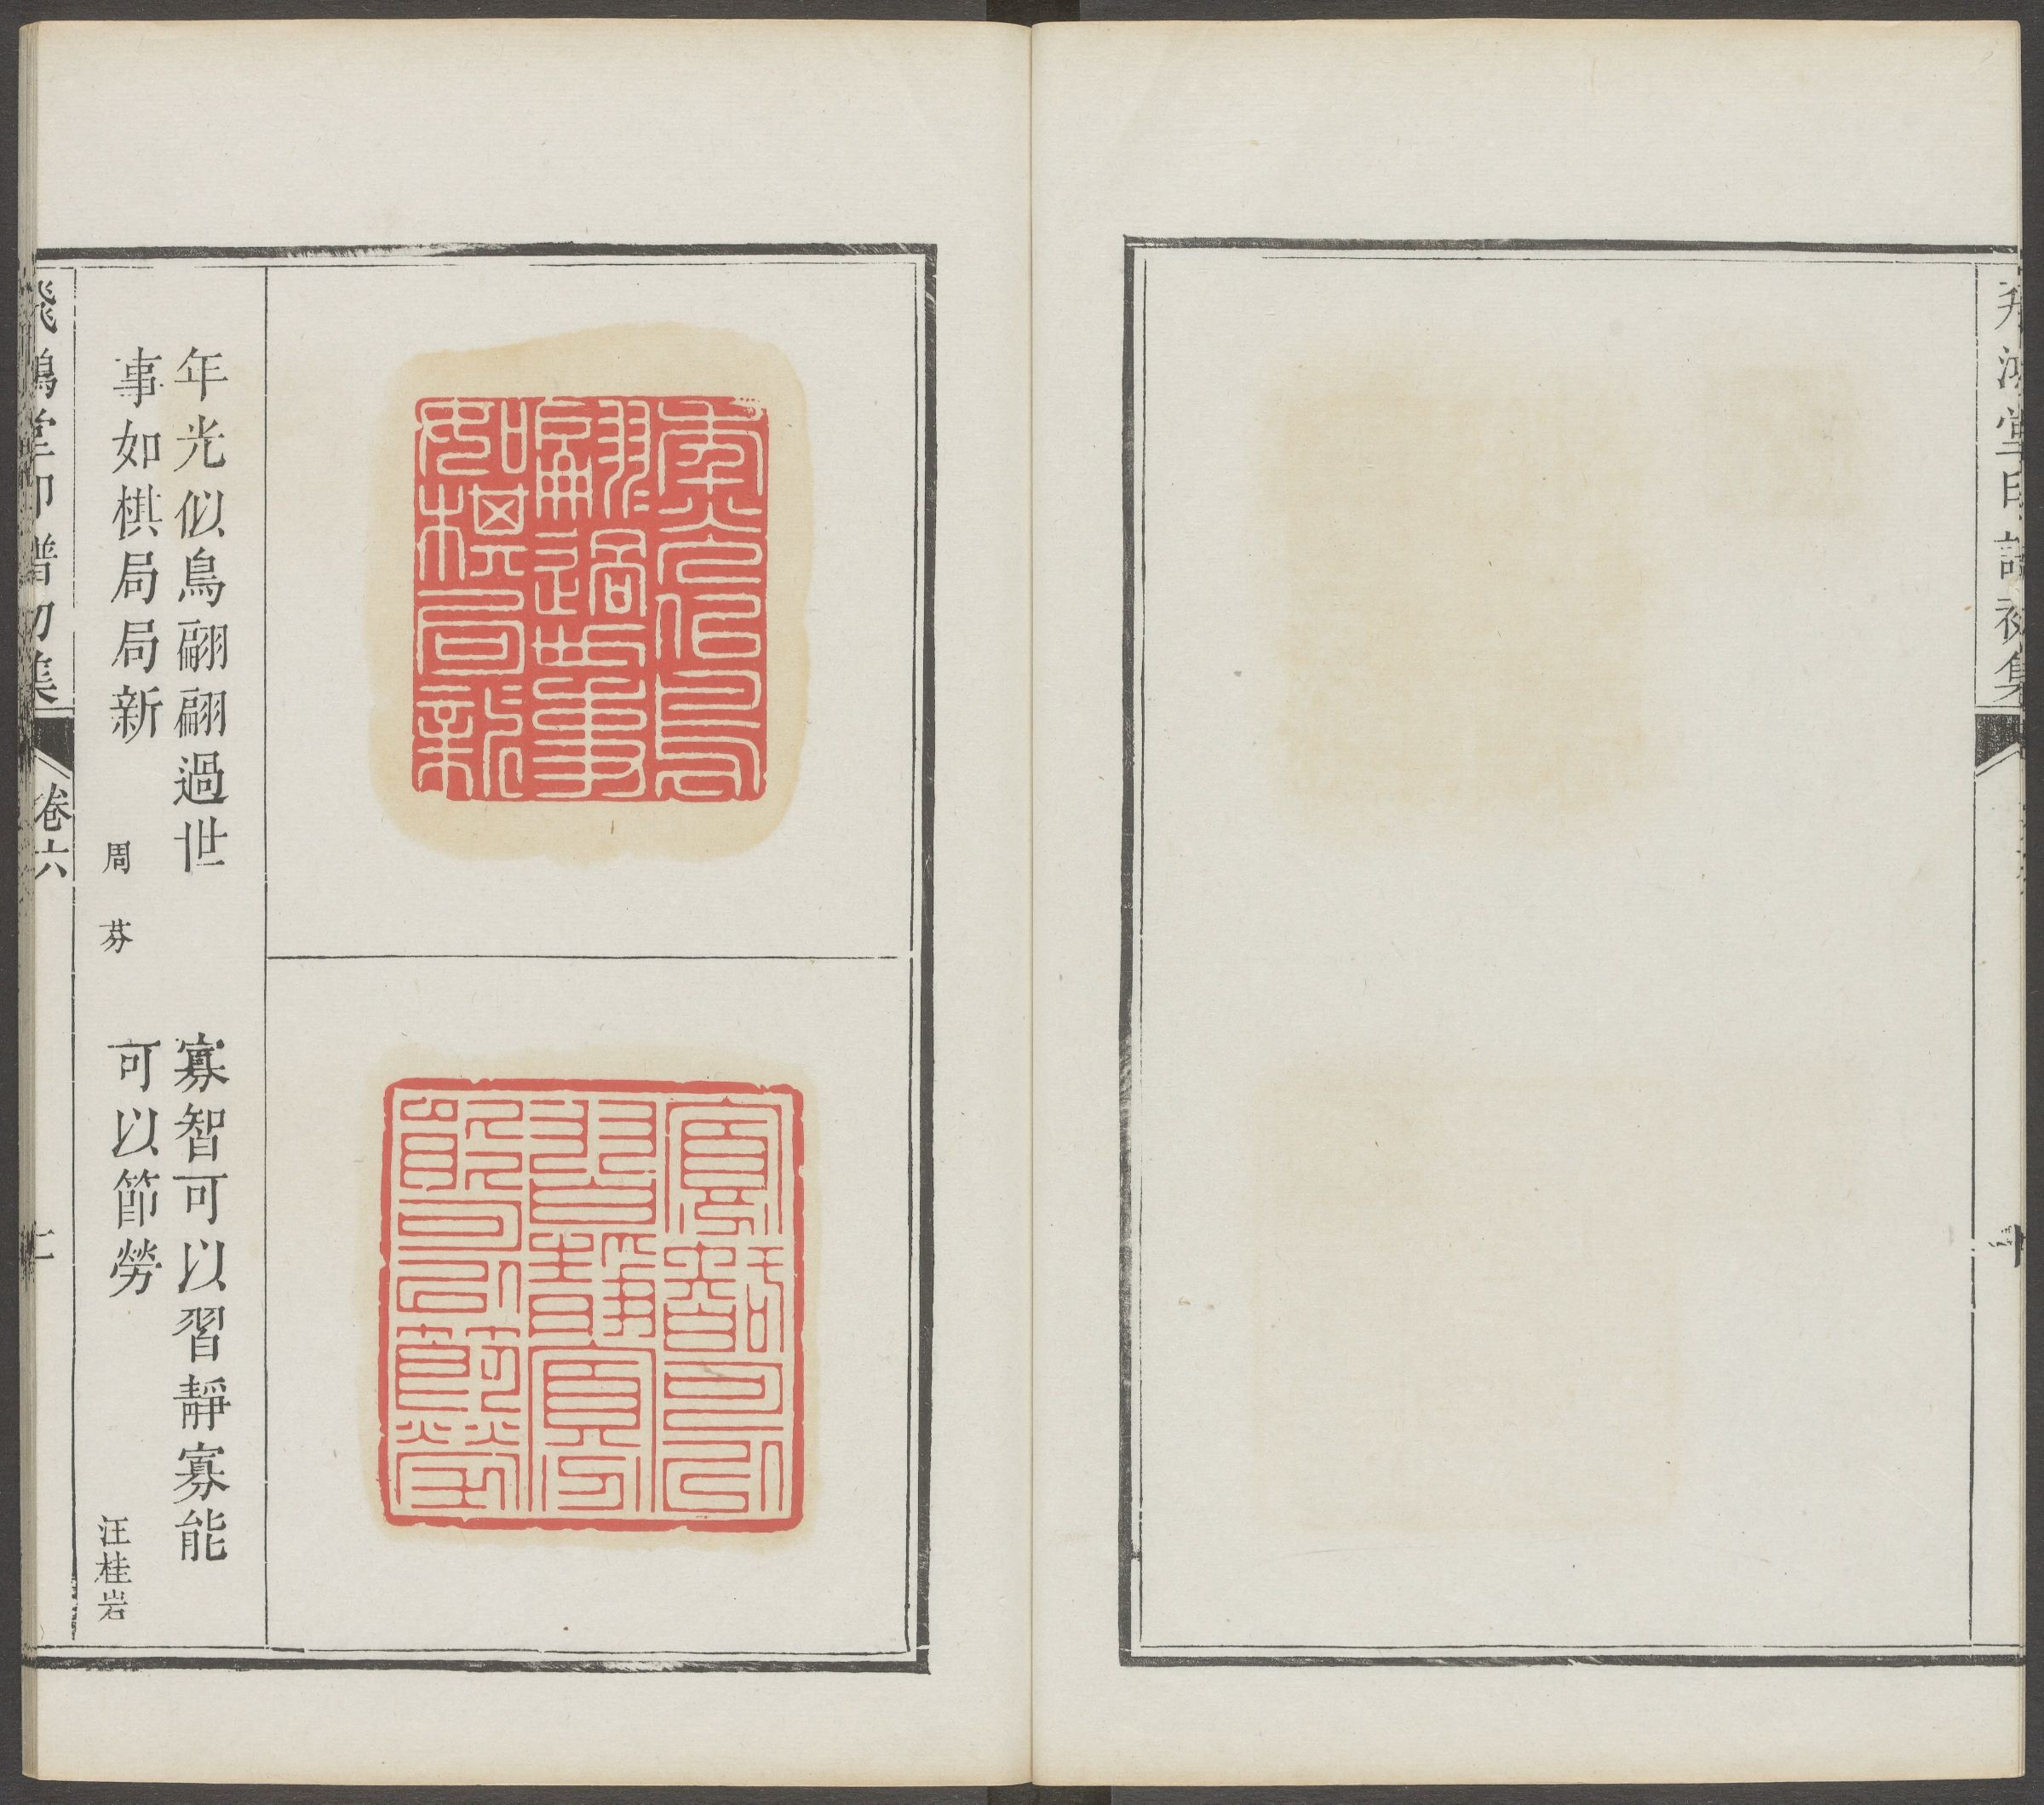 飛鴻堂印譜初集
年光似鳥翩翩過世
事如棋局局新
周芬
寡智可以習靜寡能
可以節勞
汪桂岩
飛鴻堂印譜初集
卷六